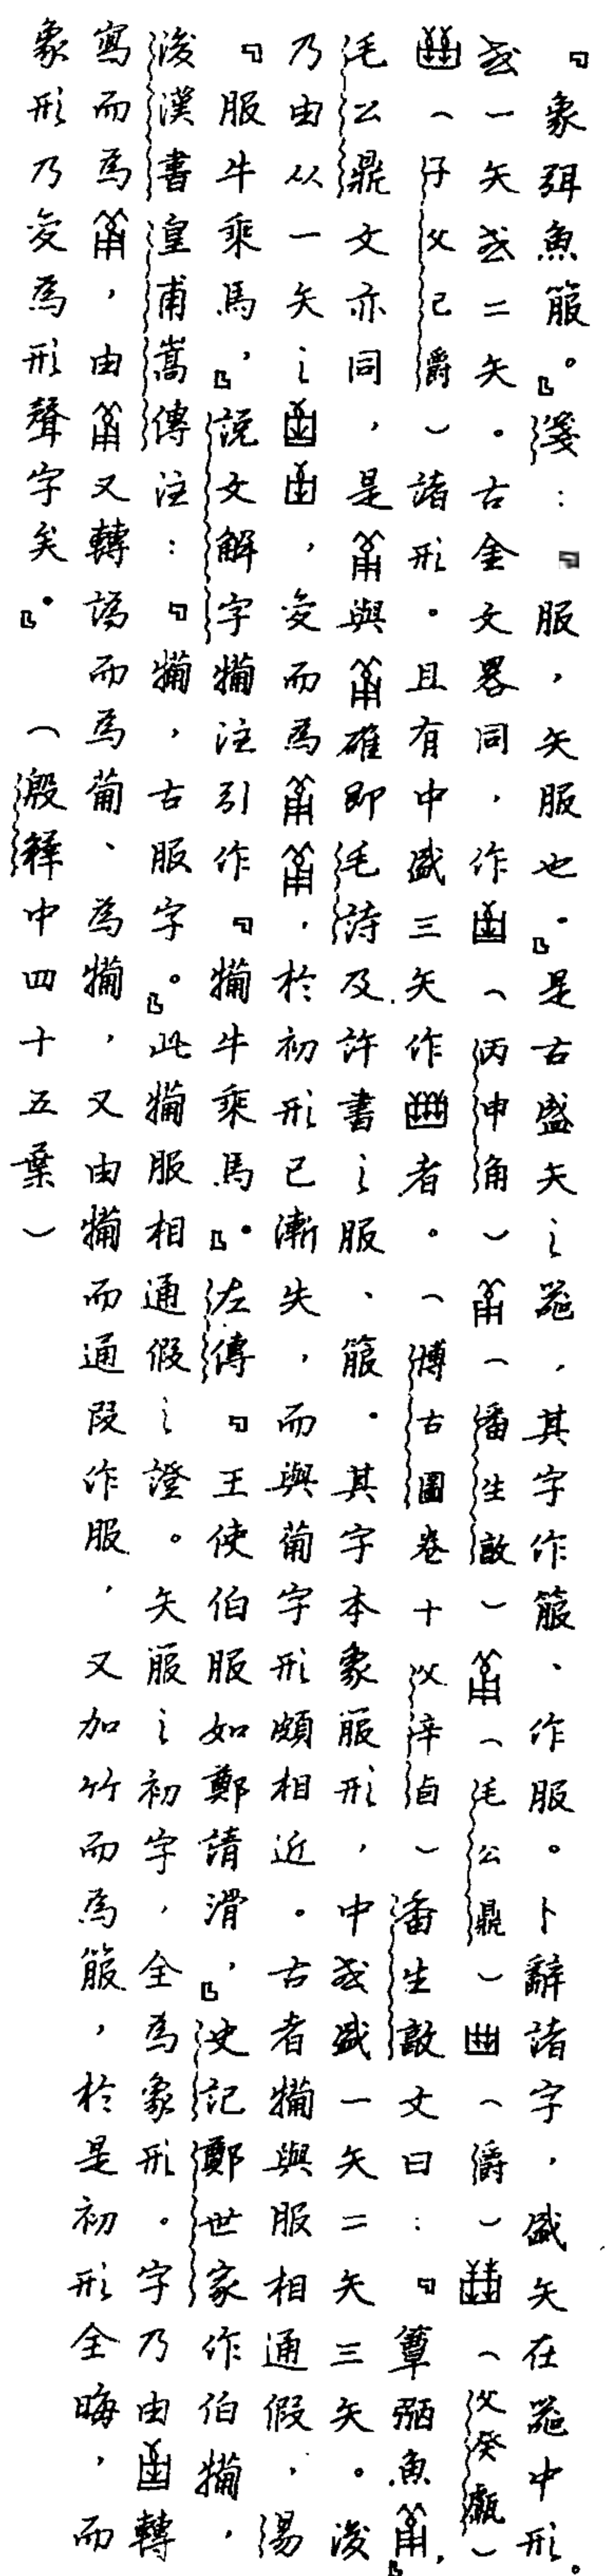 『象弭魚箙。』箋：『服，矢服也。』是古盛矢之器，其字作箙、作服。卜辭諸字，盛矢在器中形。
或一矢或二矢。古金文畧同，作（丙申角）（潘生𣪘）（毛公鼎）（爵）（父癸甗）
（子父己爵）諸形。且有中盛三矢作者。（博古圖卷十父辛卣）潘生𣪘文曰：『簟弻魚，』
毛公鼎文亦同，是與確即毛詩及許書之服、箙。其字本象箙形，中或盛一矢二矢三矢。後
乃由从一矢之，变而為，於初形已漸失，而與葡字形頗相近。古者犕與服相通假，易
『服牛乘馬，』說文解字犕注引作『犕牛乘馬。』左傳『王使伯服如鄭請滑，』史記鄭世家作伯犕，
後漢書皇甫嵩傳注：『犕，古服字。』此犕服相通假之證。矢箙之初字，全為象形。字乃由轉
寫而為，由又轉譌而為葡、為犕，又由犕而通叚作服，又加竹而為箙，於是初形全晦，而
象形乃变為形聲字矣。』（殷釋中四十五葉）